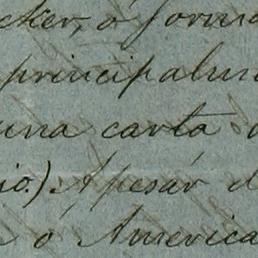 cker, o forma
principalm
una carta d
io.) Apesár d
o America